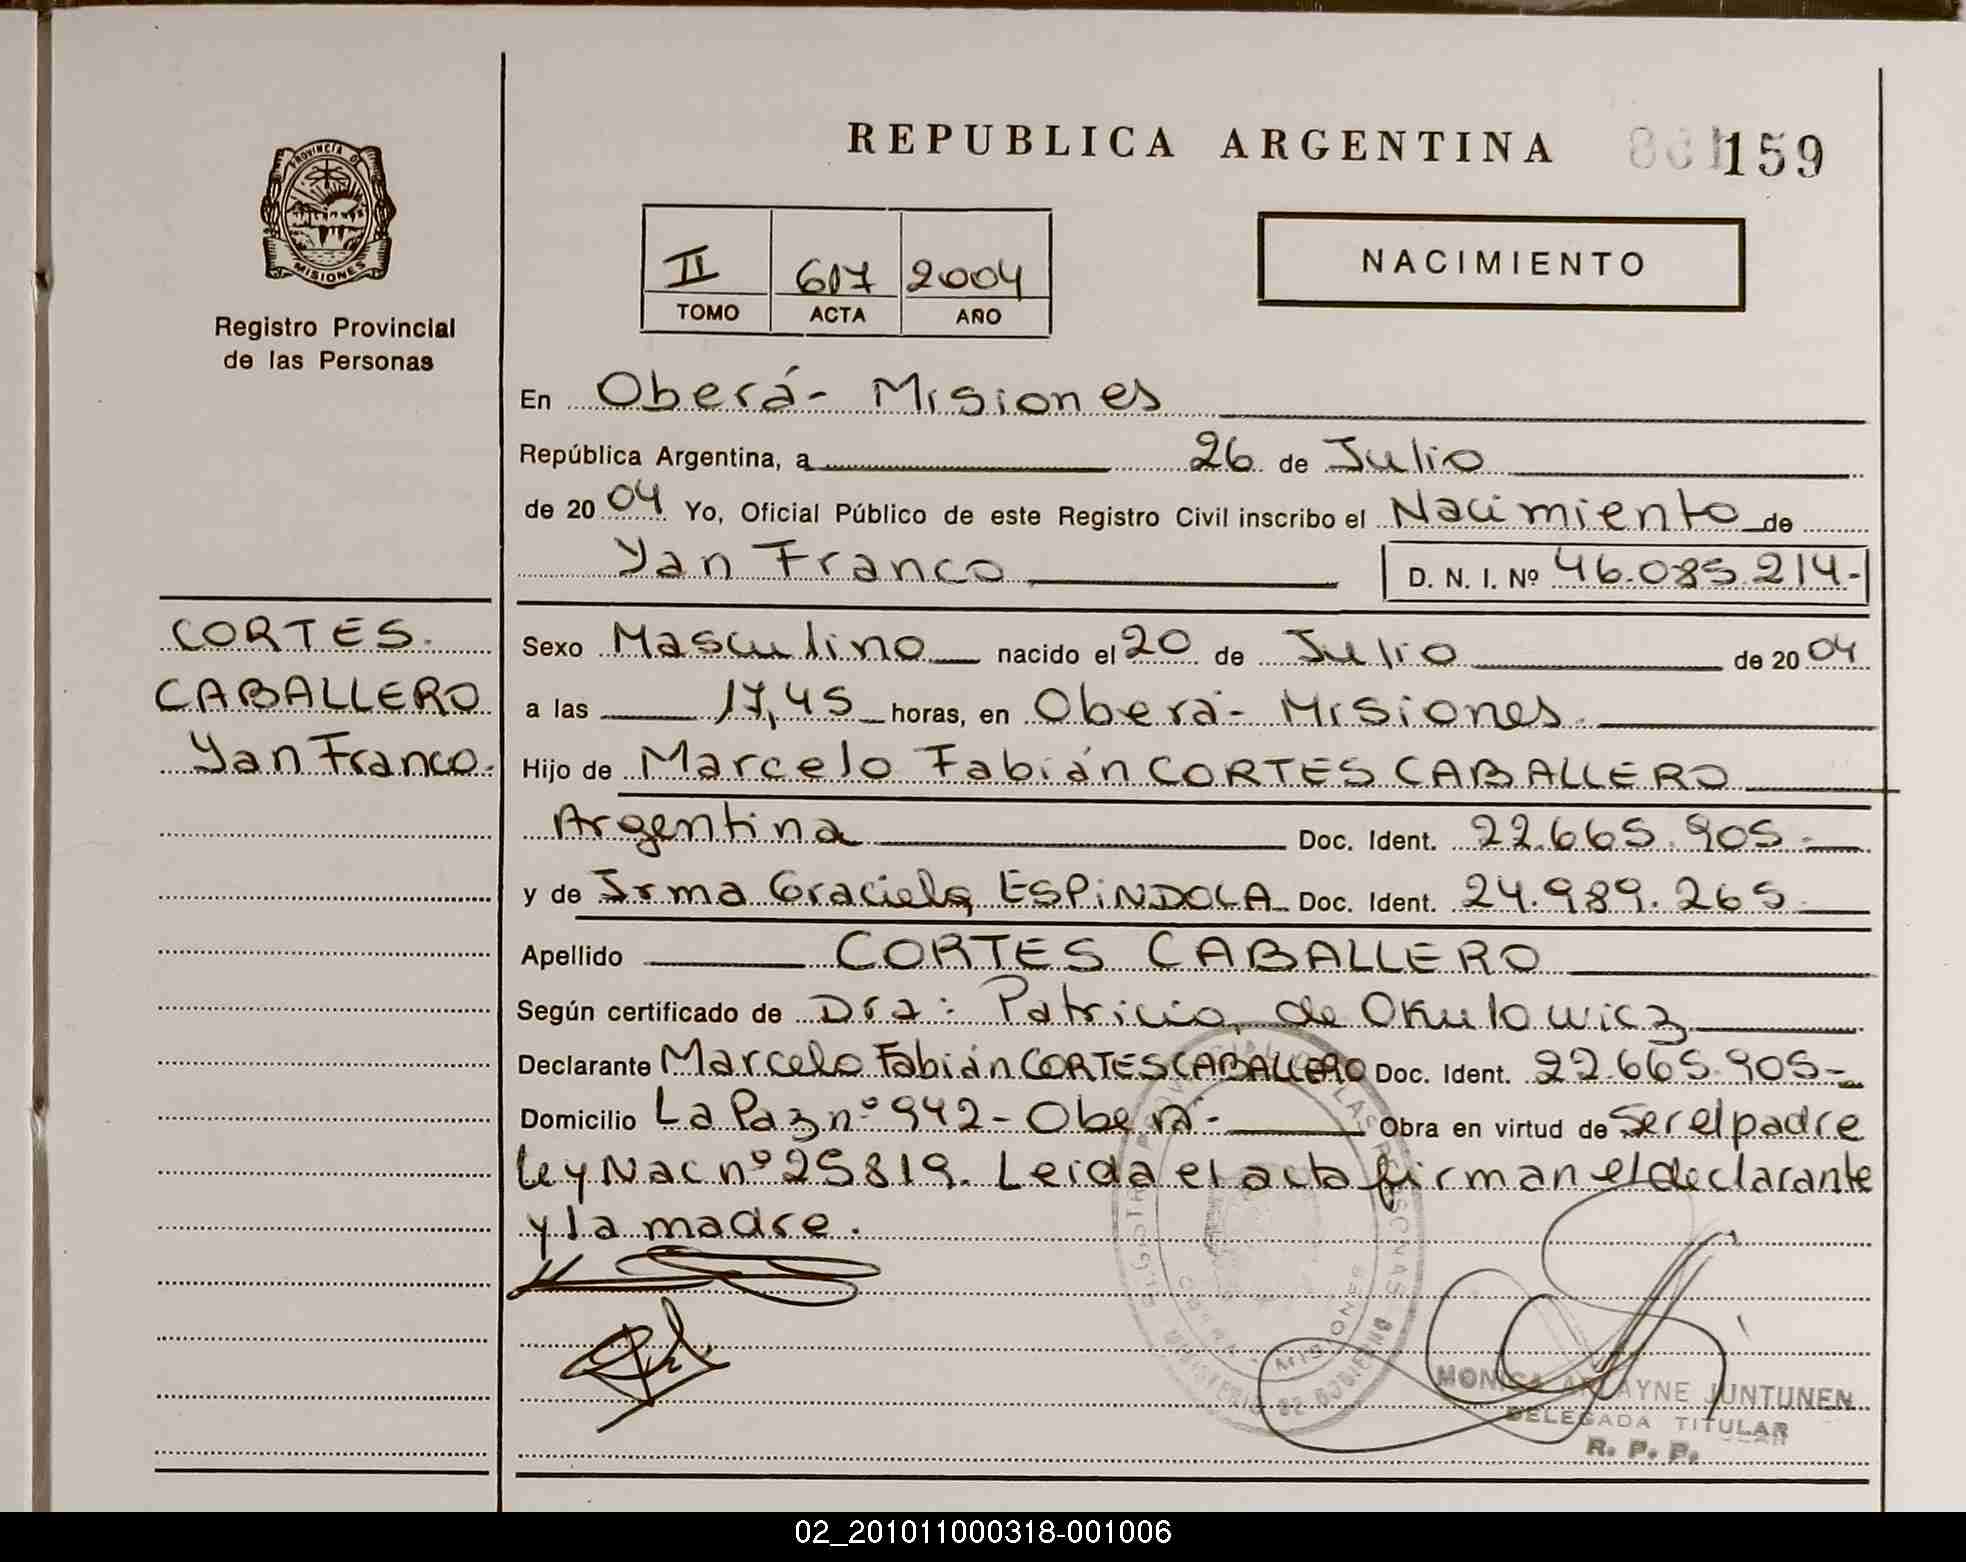 REPUBLICA ARGENTINA 159
PROVINCIA DE MISIONES
Registro Provincial
de las Personas
II 617 2004
TOMO ACTA AÑO
NACIMIENTO
En Oberá- Misiones
República Argentina, a 26 de Julio
de 2004 Yo, Oficial Público de este Registro Civil inscribo el Nacimiento de
Yan Franco D. N. I. Nº 46.085.214-
CORTES.
CABALLERO
Yan Franco.
Sexo Masculino nacido el 20 de Julio de 2004
a las 17,45 horas, en Oberá- Misiones.
Hijo de Marcelo Fabián CORTES CABALLERO
Argentina Doc. Ident. 22.665.905.-
y de Irma Graciela ESPiNDOLA Doc. Ident. 24.989.265
Apellido CORTES CABALLERO
Según certificado de Dra: Patricia de Okulowicz
Declarante Marcelo Fabián CORTES CABALLERO Doc. Ident. 22.665.905-
Domicilio La Paz nº 942- Oberá- Obra en virtud de Ser el padre
Ley Nac nº 25819. Leida el acta firman el declarante
y la madre.
JUNTUNEN
DELEGADA TITULAR
R. P. P.
02_201011000318-001006